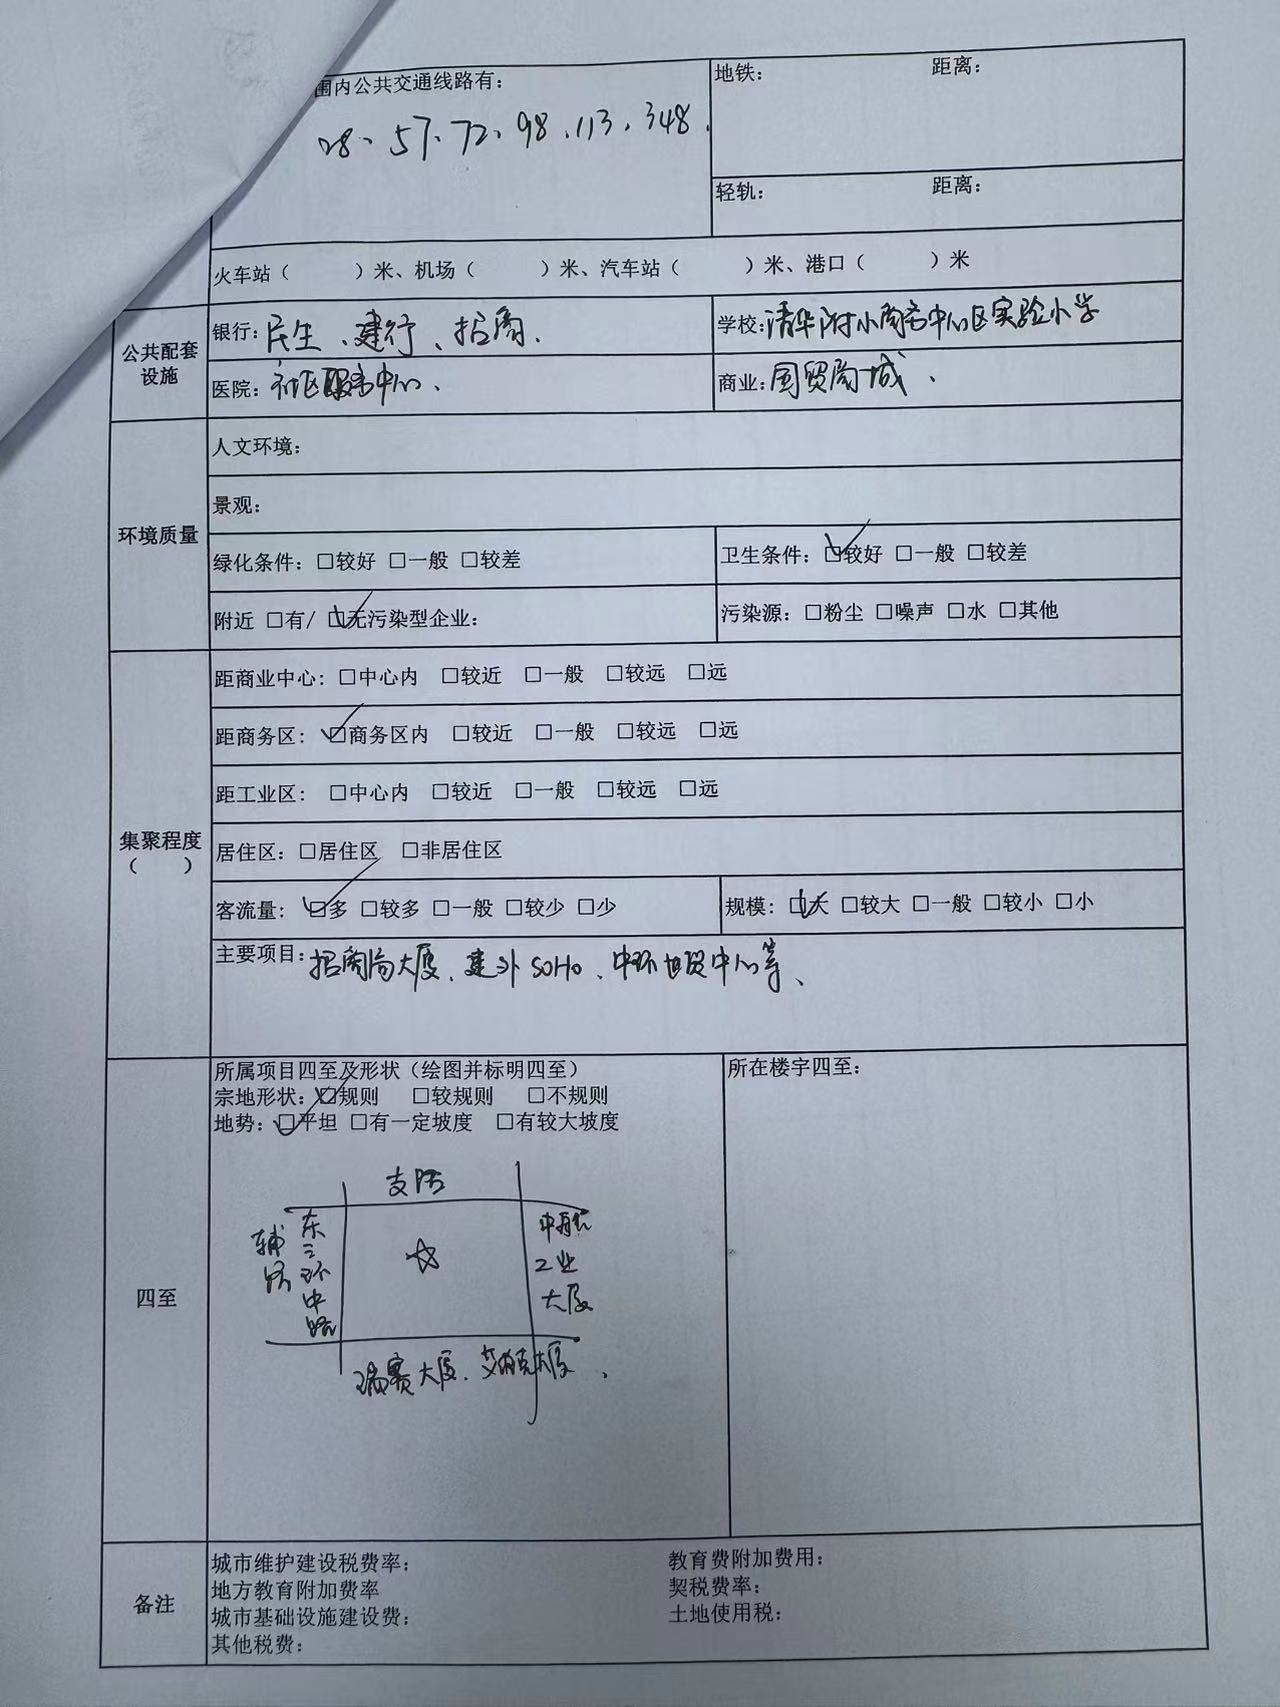 围内公共交通线路有：
地铁： 距离：
28、57、72、98、113、348、
轻轨： 距离：
火车站（ ）米、机场（ ）米、汽车站（ ）米、港口（ ）米
公共配套设施
银行：民生、建行、招商、
学校：清华附小商务中心区实验小学
医院：社区服务中心、
商业：国贸商城、
环境质量
人文环境：
景观：
绿化条件：□较好 □一般 □较差
卫生条件：☑较好 □一般 □较差
附近 □有/ ☑无污染型企业：
污染源：□粉尘 □噪声 □水 □其他
集聚程度
（ ）
距商业中心：□中心内 □较近 □一般 □较远 □远
距商务区：☑商务区内 □较近 □一般 □较远 □远
距工业区：□中心内 □较近 □一般 □较远 □远
居住区：□居住区 □非居住区
客流量：☑多 □较多 □一般 □较少 □少
规模：☑大 □较大 □一般 □较小 □小
主要项目：招商局大厦、建外SOHO、中环世贸中心等、
四至
所属项目四至及形状（绘图并标明四至）
宗地形状：☑规则 □较规则 □不规则
地势：☑平坦 □有一定坡度 □有较大坡度
支路
东三环中路
辅路
中航工业大厦
瑞赛大厦、艾维克大厦、
所在楼宇四至：
备注
城市维护建设税费率；
教育费附加费用：
地方教育附加费率
契税费率：
城市基础设施建设费：
土地使用税：
其他税费：